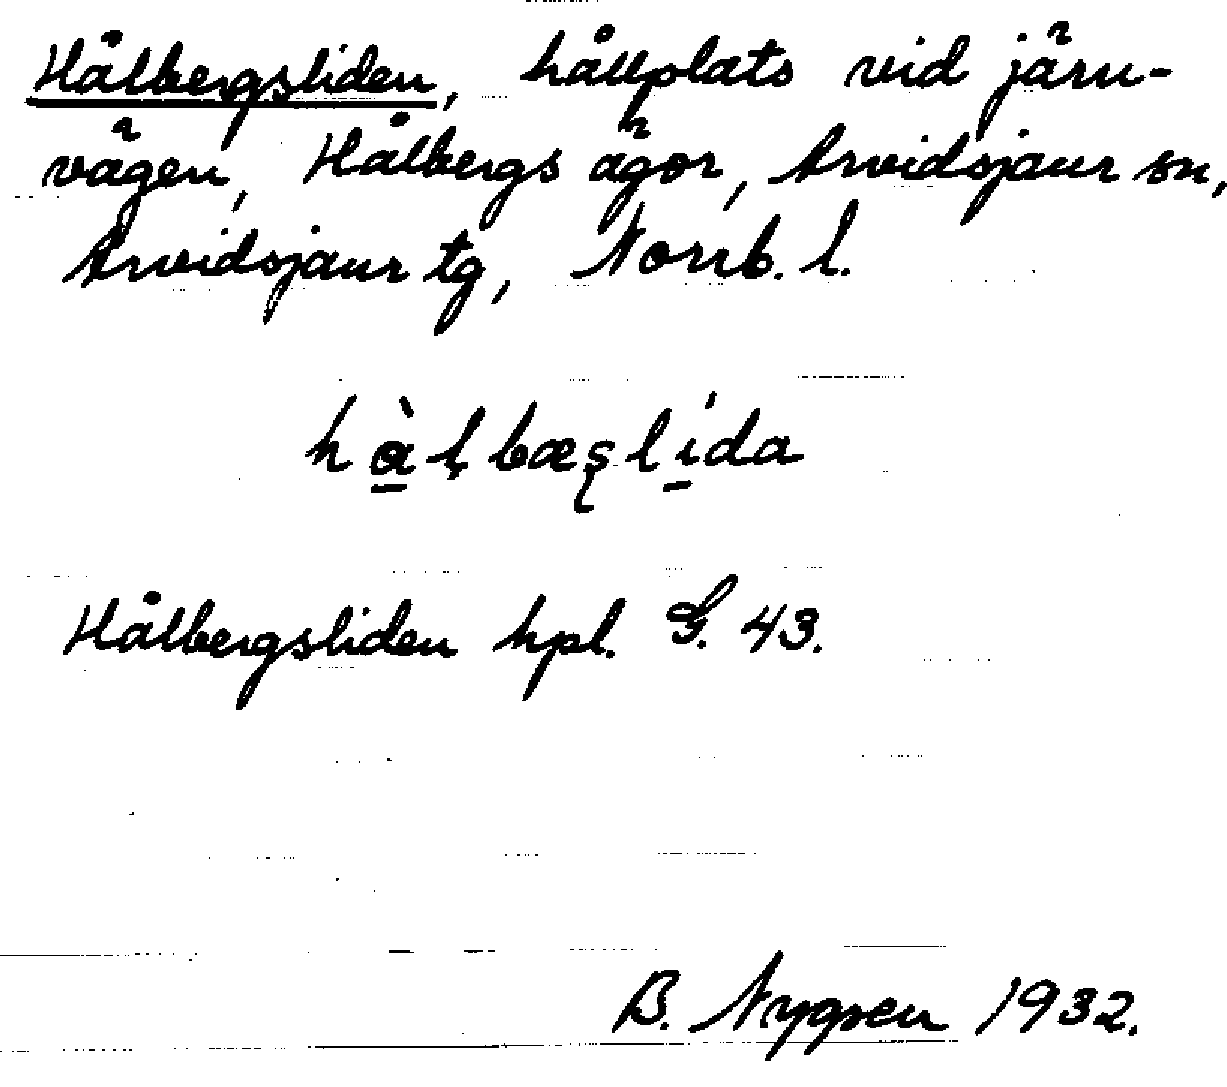 Hålbergsliden, hållplats vid järn-
vägen, Hålbergs ägor, Arvidsjaur sn,
Arvidsjaur tg, Norrb. l.
hàl̩bæʂlída
Hålbergsliden hpl. G. 43.
B. Nygren 1932.